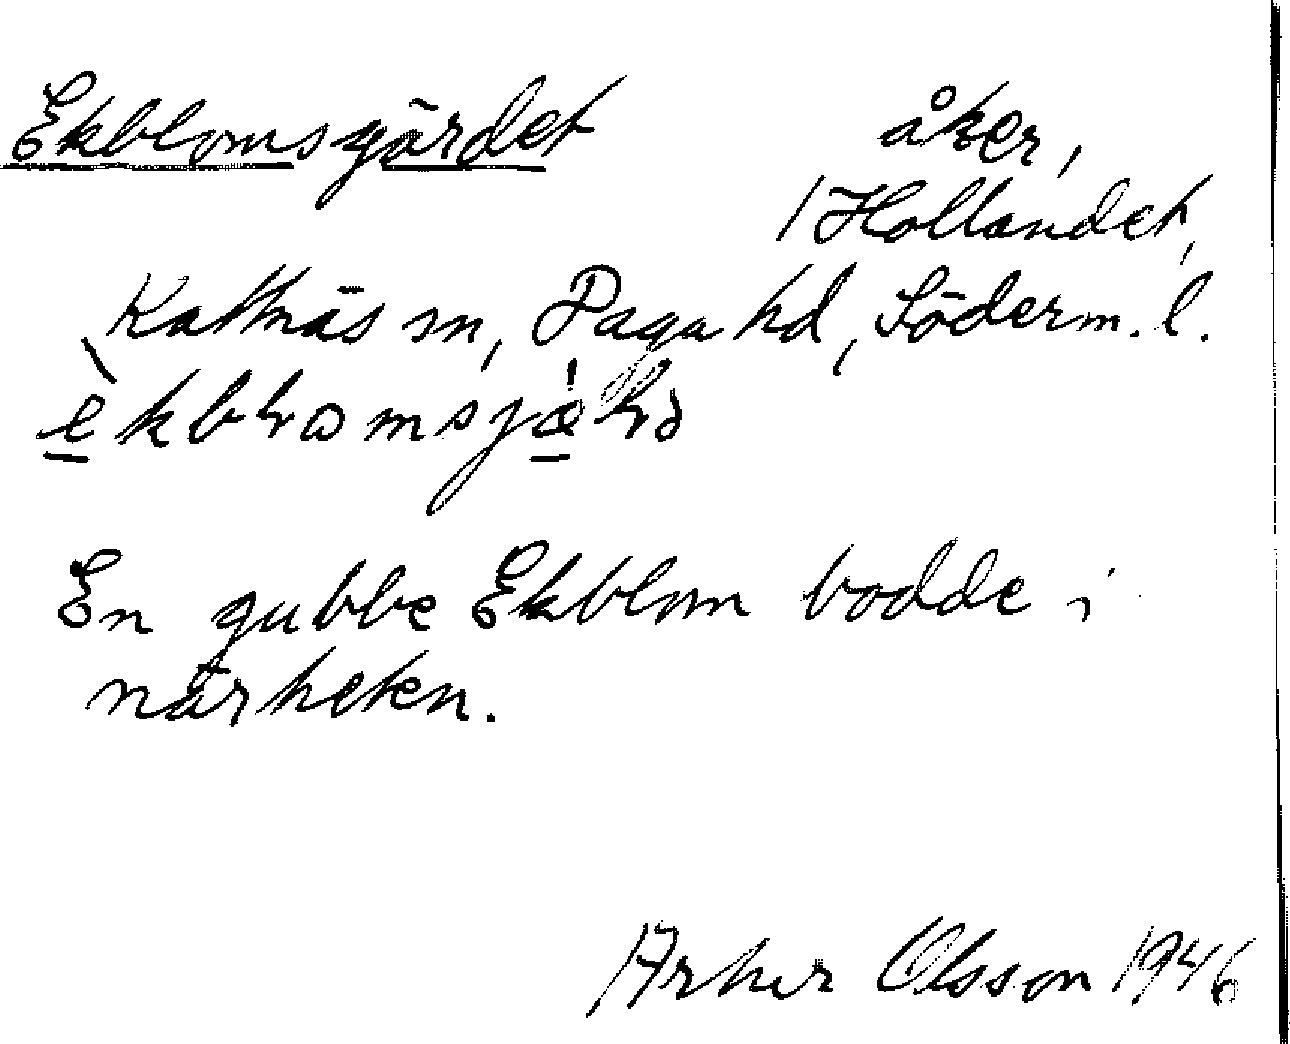 Ekblomsgärdet åker,
/ Hollandet,
Kattnäs sn, Daga hd, Söderm. l.
En gubbe Ekblom bodde i
närheten.
Artur Olsson 1946